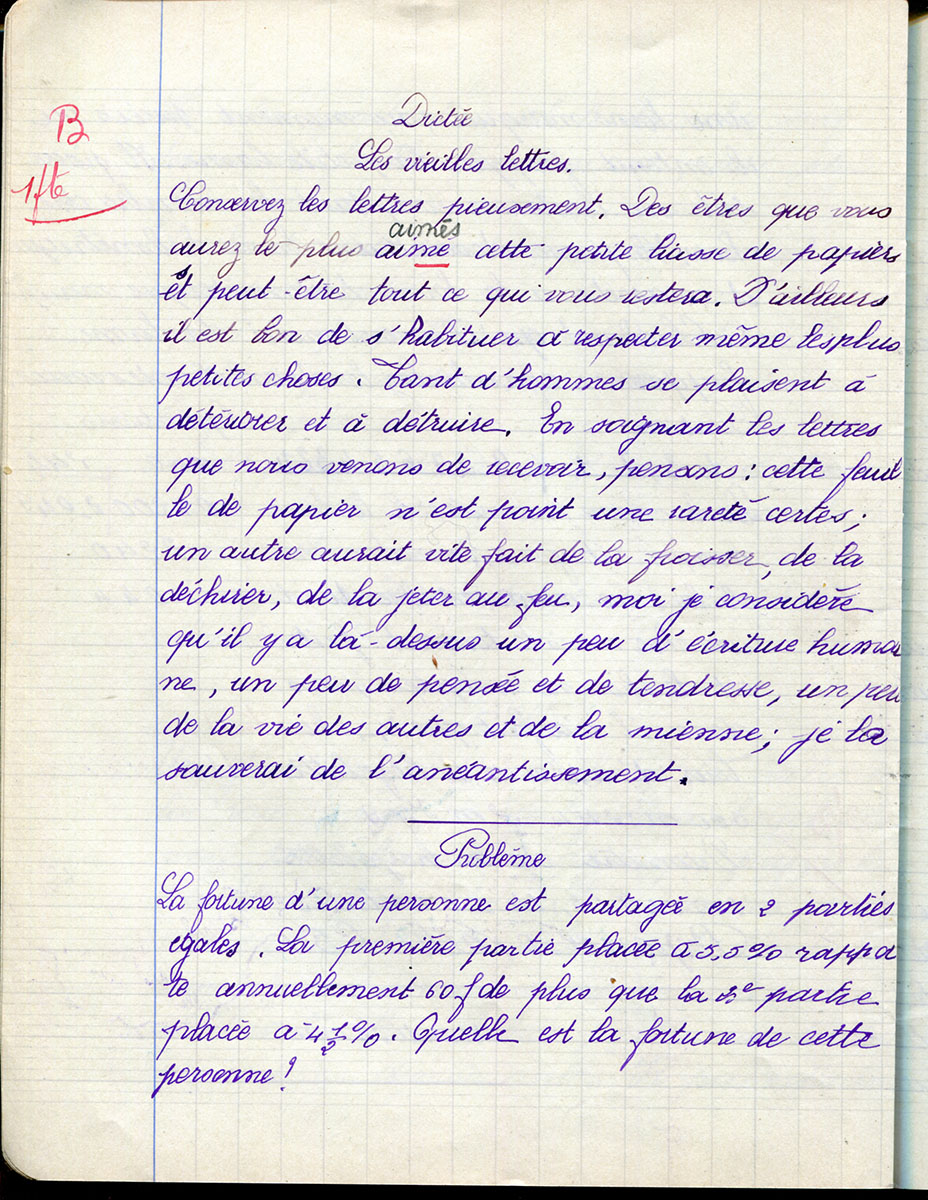 B
1 fte
Dictée
Les vieilles lettres.
Conservez les lettres pieusement. Des êtres que vous
aimés
aurez le plus aimé cette petite liasse de papiers
est peut-être tout ce qui vous restera. D'ailleurs
il est bon de s'habituer à respecter même les plus
petites choses. Tant d'hommes se plaisent à
détériorer et à détruire. En soignant les lettres
que nous venons de recevoir, pensons : cette feuil
le de papier n'est point une rareté certes ;
un autre aurait vite fait de la froisser, de la
déchirer, de la jeter au feu, moi je considère
qu'il y a là-dessus un peu d'écriture humai
ne, un peu de pensée et de tendresse, un peu
de la vie des autres et de la mienne ; je la
sauverai de l'anéantissement.
Problème
La fortune d'une personne est partagée en 2 parties
égales. La première partie placée à 5,5% rappor
te annuellement 60 f de plus que la 2e partie
placée à 4 1/2 %. Quelle est la fortune de cette
personne ?